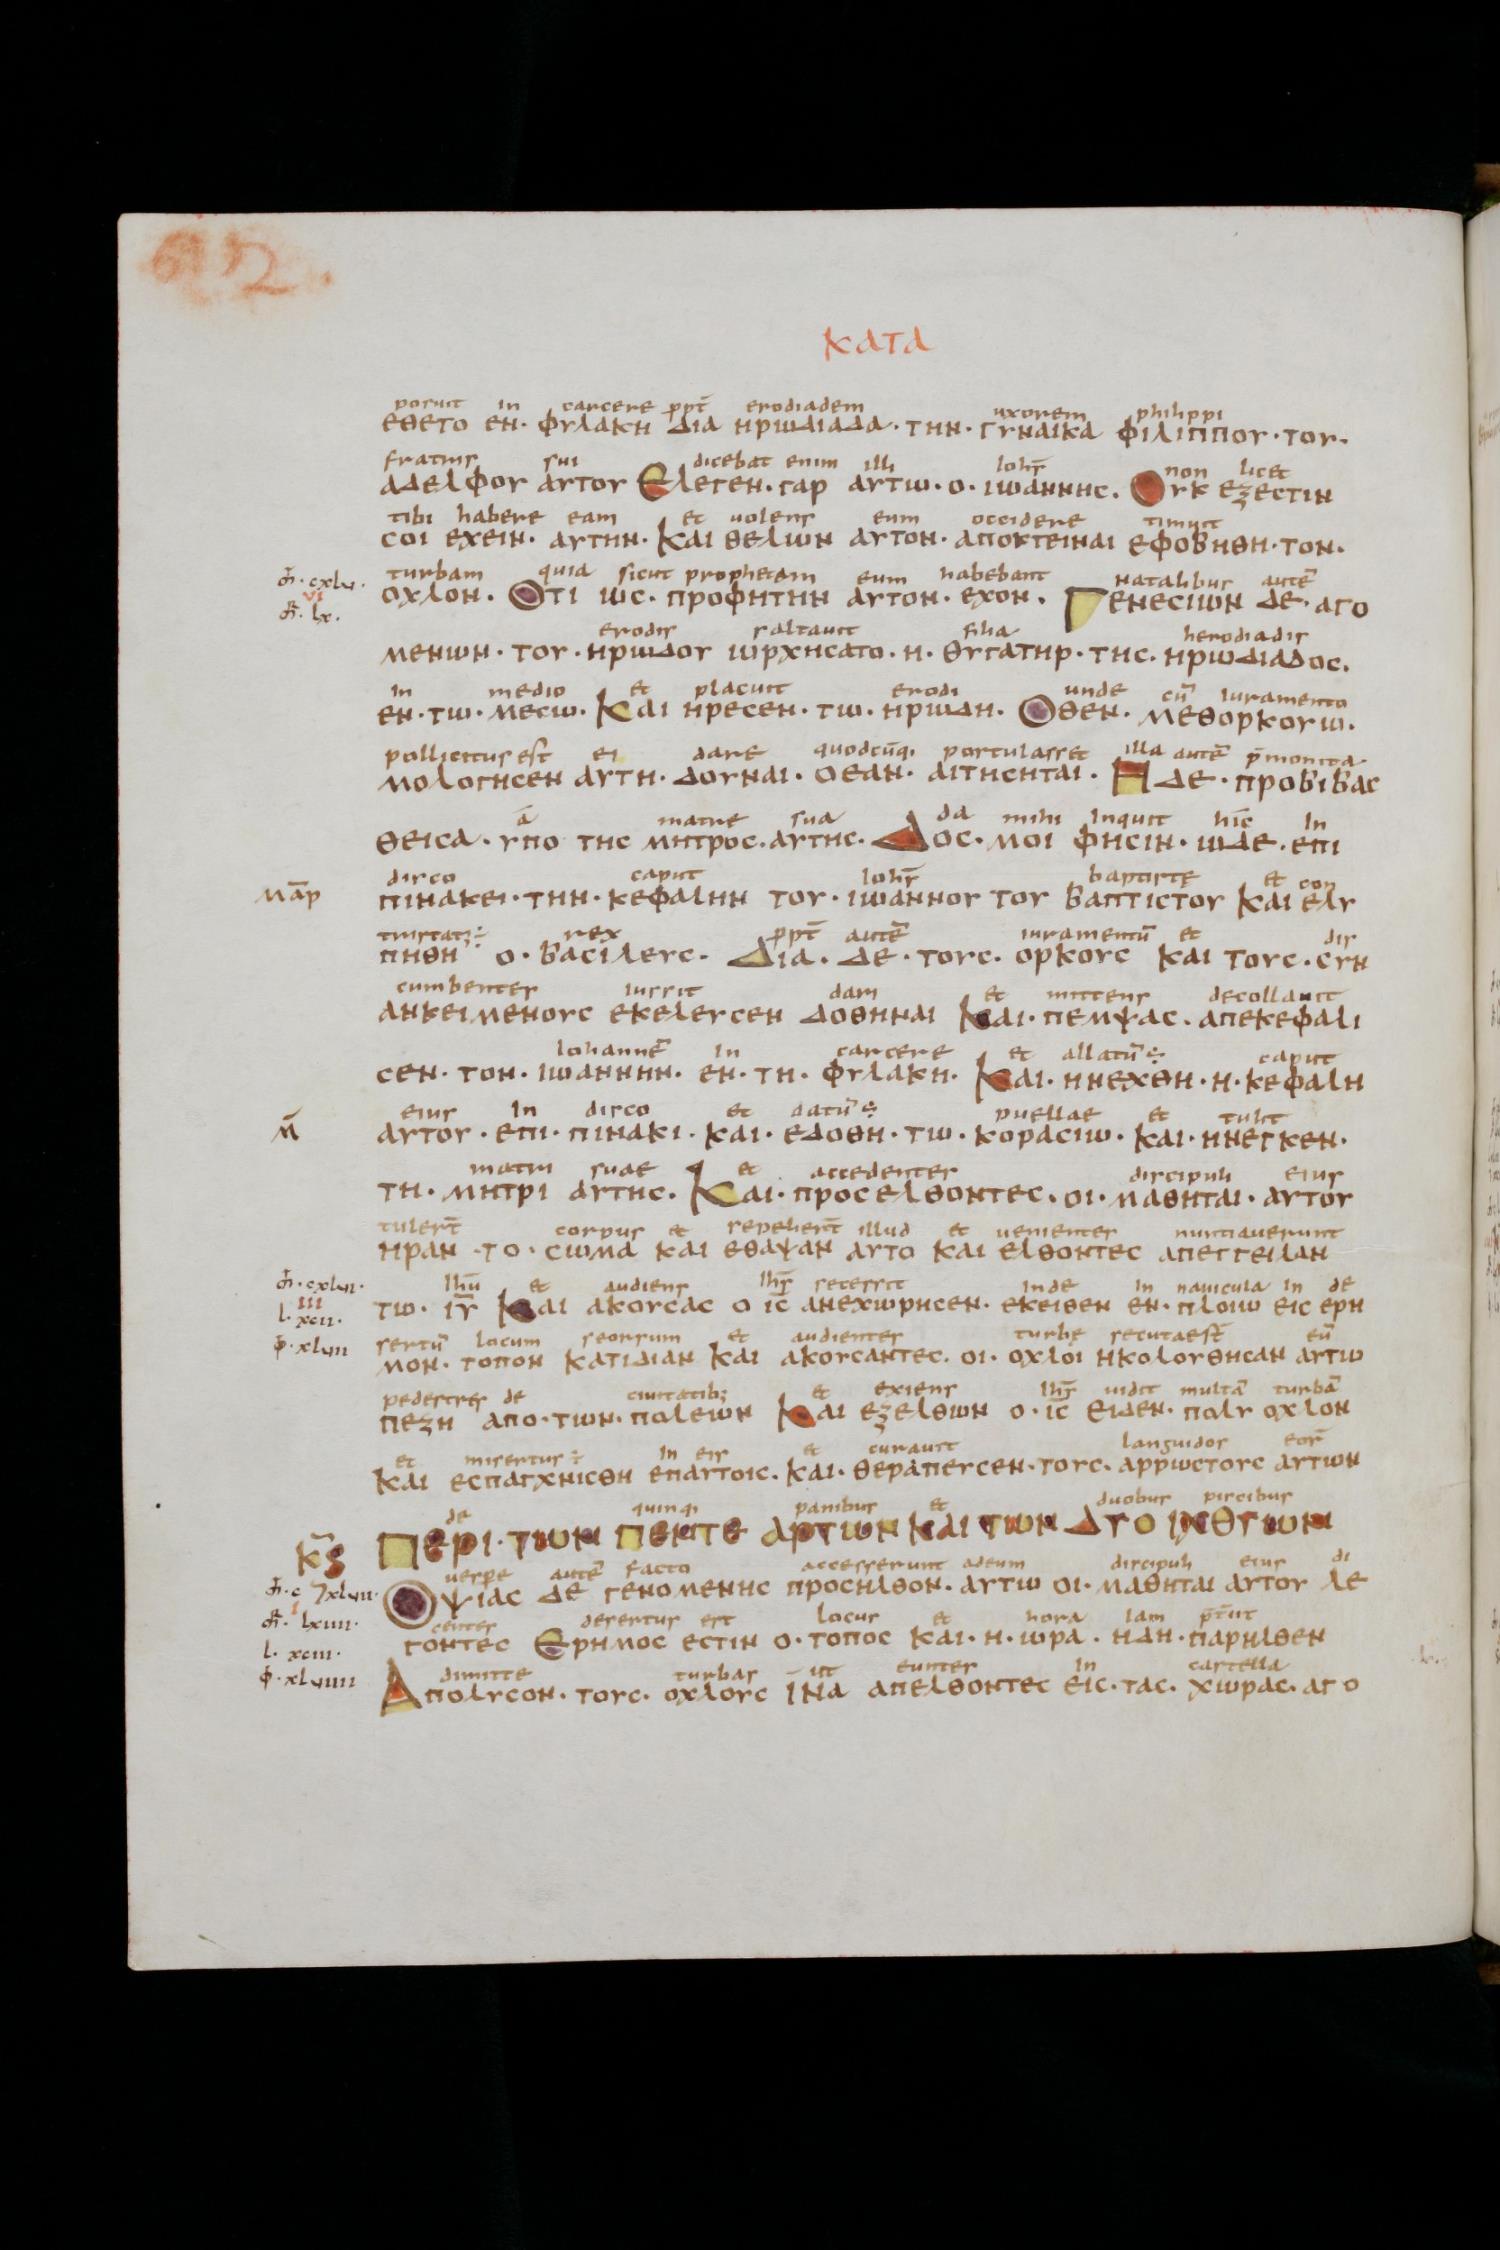 ΚΑΤΑ
posuit in carcere ꝓpt̄ erodiadem uxorem philippi
ΕΘΕΤΟ ΕΝ· ΦΥΛΑΚΗ ΔΙΑ ΗΡΩΔΙΑΔΑ· ΤΗΝ· ΓΥΝΑΙΚΑ ΦΙΛΙΠΠΟΥ· ΤΟΥ·
fratris sui dicebat enim illi ioħs̄ non licet
ΑΔΕΛΦΟΥ ΑΥΤΟΥ ΕΛΕΓΕΝ· ΓΑΡ ΑΥΤΩ· Ο· ΙΩΑΝΝΗΣ· ΟΥΚ ΕΞΕΣΤΙΝ
tibi habere eam et uolens eum occidere timuit
ΣΟΙ ΕΧΕΙΝ· ΑΥΤΗΝ· ΚΑΙ ΘΕΛΩΝ ΑΥΤΟΝ· ΑΠΟΚΤΕΙΝΑΙ ΕΦΟΒΗΘΗ· ΤΟΝ·
m̄· cxlu· turbam quia sicut prophetam eum habebant natalibus autē
VI
m̄r· lx· ΟΧΛΟΝ· ΟΤΙ ΩΣ· ΠΡΟΦΗΤΗΝ ΑΥΤΟΝ· ΕΧΟΝ· ΓΕΝΕΣΙΩΝ ΔΕ· ΑΓΟ
erodis saltauit filia herodiadis
ΜΕΝΩΝ· ΤΟΥ· ΗΡΩΔΟΥ ΩΡΧΗΣΑΤΟ· Η· ΘΥΓΑΤΗΡ· ΤΗΣ· ΗΡΩΔΙΑΔΟΣ·
in medio et placuit erodi unde cū iuramento
ΕΝ· ΤΩ· ΜΕΣΩ· ΚΑΙ ΗΡΕΣΕΝ· ΤΩ· ΗΡΩΔΗ· ΟΘΕΝ· ΜΕΘΟΡΚΟΥ Ω·
pollicitus est ei dare quodcūq· postulasset illa autē p̄monita
ΜΟΛΟΓΗΣΕΝ ΑΥΤΗ· ΔΟΥΝΑΙ· ΟΕΑΝ· ΑΙΤΗΣΗΤΑΙ· Η ΔΕ· ΠΡΟΒΙΒΑΣ
ā matre sua da mihi inquit hīc in
ΘΕΙΣΑ· ΥΠΟ ΤΗΣ ΜΗΤΡΟΣ· ΑΥΤΗΣ· ΔΟΣ· ΜΟΙ ΦΗΣΙΝ· ΩΔΕ· ΕΠΙ
disco caput ioħs̄ baptiste et con
ΜΑ̅Ρ ΠΙΝΑΚΕΙ· ΤΗΝ· ΚΕΦΑΛΗΝ ΤΟΥ· ΙΩΑΝΝΟΥ ΤΟΥ ΒΑΠΤΙΣΤΟΥ ΚΑΙ ΕΛΥ
tristatꝫ ÷ rex ꝓpt̄ autē iuramentū et dis
ΠΗΘΗ Ο· ΒΑΣΙΛΕΥΣ· ΔΙΑ· ΔΕ· ΤΟΥΣ· ΟΡΚΟΥΣ ΚΑΙ ΤΟΥΣ· ΣΥΝ
cumbentes iussit dari et mittens decollauit
ΑΝΚΕΙΜΕΝΟΥΣ ΕΚΕΛΕΥΣΕΝ ΔΟΘΗΝΑΙ ΚΑΙ· ΠΕΜΨΑΣ· ΑΠΕΚΕΦΑΛΙ
iohannē in carcere et allatū ÷ caput
ΣΕΝ· ΤΟΝ· ΙΩΑΝΝΗΝ· ΕΝ· ΤΗ· ΦΥΛΑΚΗ· ΚΑΙ· ΗΝΕΧΘΗ· Η· ΚΕΦΑΛΗ
eius in disco et datū ÷ puellae et tulit
Μ̅ ΑΥΤΟΥ· ΕΠΙ· ΠΙΝΑΚΙ· ΚΑΙ· ΕΔΟΘΗ· ΤΩ· ΚΟΡΑΣΙΩ· ΚΑΙ· ΗΝΕΓΚΕΝ·
matri suae et accedentes discipuli eius
ΤΗ· ΜΗΤΡΙ ΑΥΤΗΣ· ΚΑΙ· ΠΡΟΣΕΛΘΟΝΤΕΣ· ΟΙ· ΜΑΘΗΤΑΙ· ΑΥΤΟΥ
tulert̄ corpus et sepeliert̄ illud et uenientes nuntiauerunt
ΗΡΑΝ· ΤΟ· ΣΩΜΑ ΚΑΙ ΕΘΑΨΑΝ ΑΥΤΟ ΚΑΙ ΕΛΘΟΝΤΕΣ ΑΠΕΓΓΕΙΛΑΝ
m̄· cxluı· iħū et audiens iħs̄ secessit inde in nauicula in de
III
l· xcıı· ΤΩ· ΙΥ̅ ΚΑΙ ΑΚΟΥΣΑΣ Ο ΙΣ̅ ΑΝΕΧΩΡΗΣΕΝ· ΕΚΕΙΘΕΝ ΕΝ· ΠΛΟΙΩ ΕΙΣ ΕΡΗ
Φ· xluıı sertū locum seorsum et audientes turbę secutaest̄ eū
ΜΟΝ· ΤΟΠΟΝ ΚΑΤΙΔΙΑΝ ΚΑΙ ΑΚΟΥΣΑΝΤΕΣ· ΟΙ· ΟΧΛΟΙ ΗΚΟΛΟΥΘΗΣΑΝ ΑΥΤΩ
pedestres de ciuitatibꝫ et exiens iħs̄ uidit multā turbā
ΠΕΞΗ ΑΠΟ· ΤΩΝ· ΠΟΛΕΩΝ ΚΑΙ ΕΞΕΛΘΩΝ Ο· ΙΣ̅ ΕΙΔΕΝ· ΠΟΛΥ ΟΧΛΟΝ
et misertus ÷ in eis et curauit languidos eor̄
ΚΑΙ ΕΣΠΑΓΧΝΙΣΘΗ ΕΠΑΥΤΟΙΣ· ΚΑΙ· ΘΕΡΑΠΕΥΣΕΝ· ΤΟΥΣ· ΑΡΡΩΣΤΟΥΣ ΑΥΤΩΝ
de quinqi panibus et duobus piscibus
Κ̅Ϛ ΠΕΡΙ· ΤΩΝ ΠΕΝΤΕ ΑΡΤΩΝ ΚΑΙ ΤΩΝ ΔΥΟ ΙΧΘΥΩΝ
uespe autē facto accesserunt adeum discipuli eius di
m̄· c7xluıı· ΟΨΙΑΣ ΔΕ ΓΕΝΟΜΕΝΗΣ ΠΡΟΣΗΛΘΟΝ· ΑΥΤΩ ΟΙ· ΜΑΘΗΤΑΙ ΑΥΤΟΥ ΛΕ
I
m̄r· lxıııı· centes desertus est locus et hora iam p̄t̄iit
l· xcııı· ΓΟΝΤΕΣ ΕΡΗΜΟΣ ΕΣΤΙΝ Ο· ΤΟΠΟΣ ΚΑΙ· Η· ΩΡΑ· ΗΔΗ· ΠΑΡΗΛΘΕΝ
Φ· xluıııı dimitte turbas ut euntes in castella
ΑΠΟΛΥΣΟΝ· ΤΟΥΣ· ΟΧΛΟΥΣ ΙΝΑ ΑΠΕΛΘΟΝΤΕΣ ΕΙΣ· ΤΑΣ· ΧΩΡΑΣ· ΑΓΟ